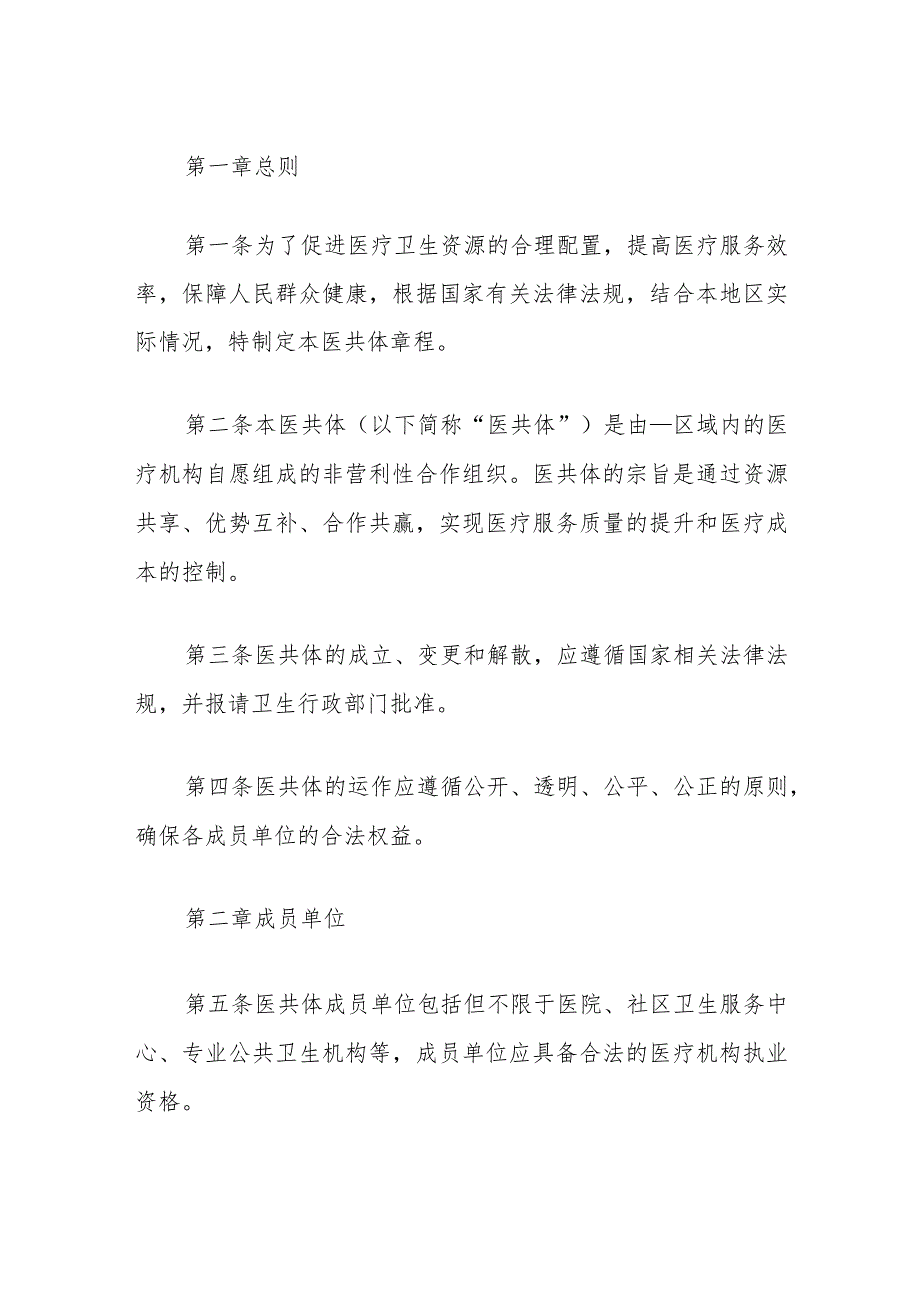 第一章总则
第一条为了促进医疗卫生资源的合理配置，提高医疗服务效
率，保障人民群众健康，根据国家有关法律法规，结合本地区实
际情况，特制定本医共体章程。
第二条本医共体（以下简称“医共体”）是由—区域内的医
疗机构自愿组成的非营利性合作组织。医共体的宗旨是通过资源
共享、优势互补、合作共赢，实现医疗服务质量的提升和医疗成
本的控制。
第三条医共体的成立、变更和解散，应遵循国家相关法律法
规，并报请卫生行政部门批准。
第四条医共体的运作应遵循公开、透明、公平、公正的原则，
确保各成员单位的合法权益。
第二章成员单位
第五条医共体成员单位包括但不限于医院、社区卫生服务中
心、专业公共卫生机构等，成员单位应具备合法的医疗机构执业
资格。